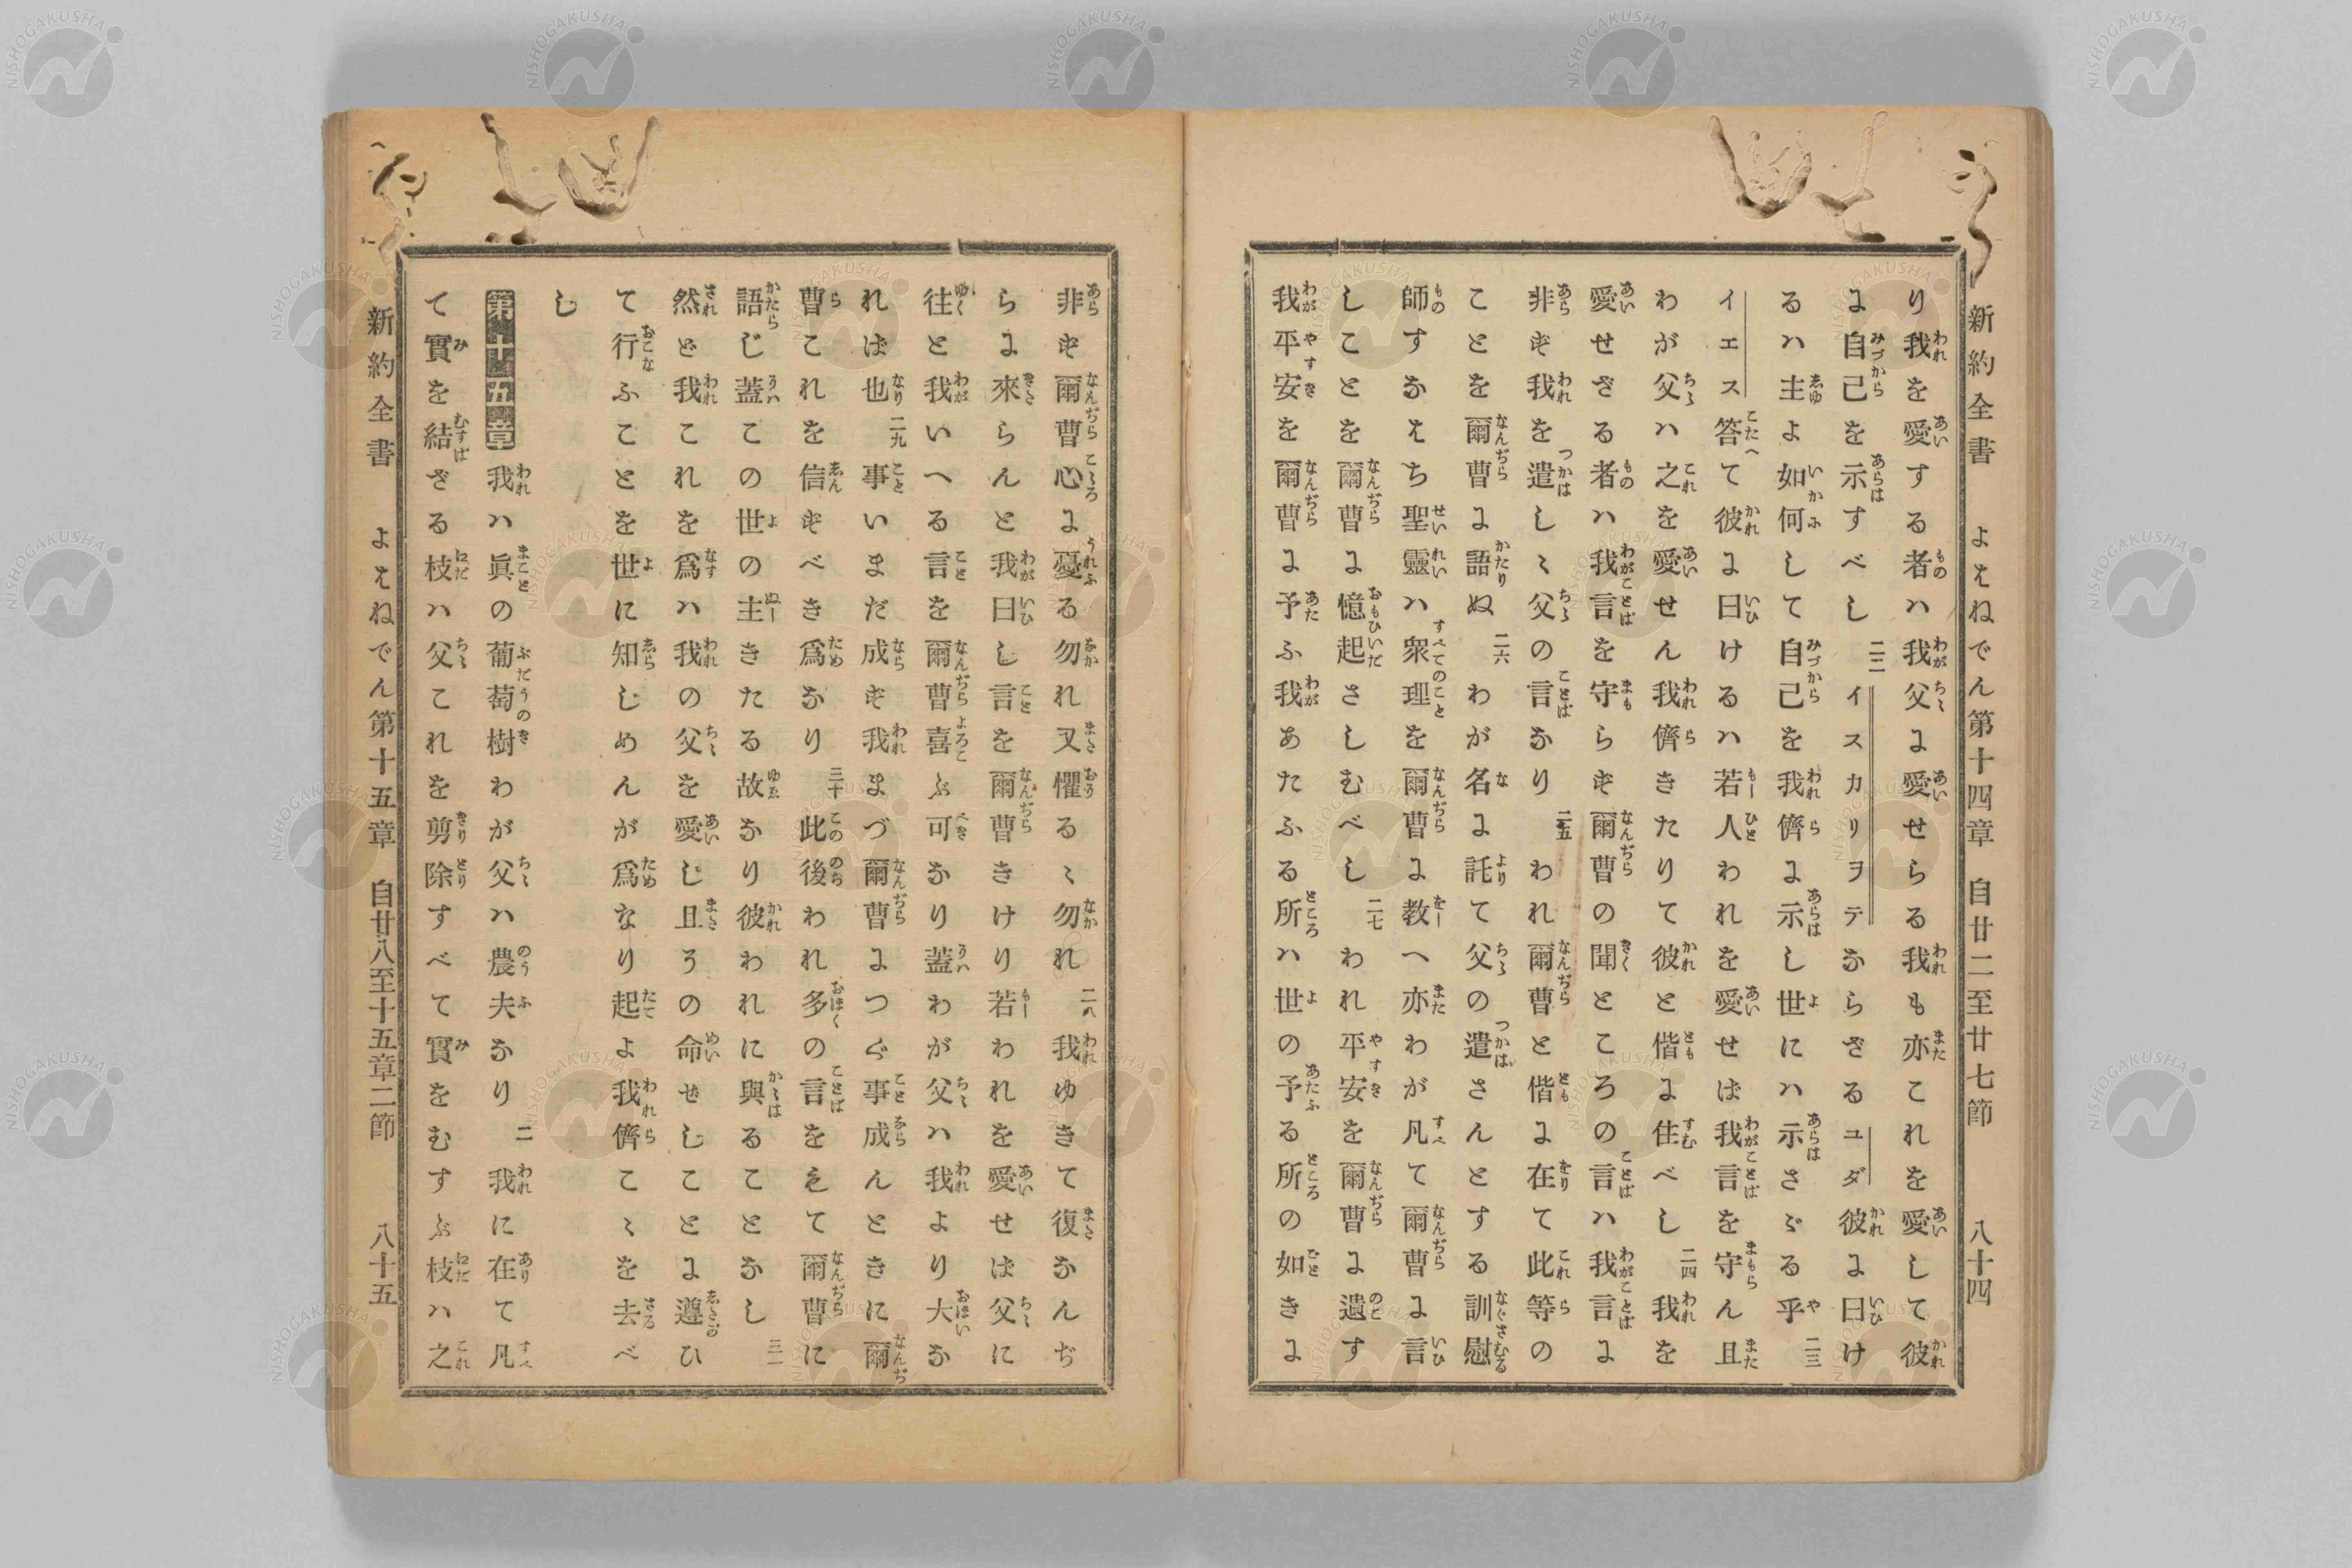 新約全書 よはねでん第十四章 自廿二至廿七節 八十四
り我を愛する者ハ我父に愛せらる我も亦これを愛して彼
に自己を示すべし 二二 イスカリヲテならざるユダ彼に曰け
るハ主よ如何して自己を我儕に示し世にハ示さゞる乎 二三
イエス答て彼に曰けるハ若人われを愛せば我言を守ん且
わが父ハ之を愛せん我儕きたりて彼と偕に住べし 二四 我を
愛せざる者ハ我言を守らず爾曹の聞ところの言ハ我言に
非ず我を遣しゝ父の言なり 二五 われ爾曹と偕に在て此等の
ことを爾曹に語ぬ 二六 わが名に託て父の遣さんとする訓慰
師すなはち聖靈ハ衆理を爾曹に教へ亦わが凡て爾曹に言
しことを爾曹に憶起さしむべし 二七 われ平安を爾曹に遺す
我平安を爾曹に予ふ我あたふる所ハ世の予る所の如きに
非ず爾曹心に憂る勿れ又懼るゝ勿れ 二八 我ゆきて復なんぢ
らに來らんと我曰し言を爾曹きけり若われを愛せば父に
往と我いへる言を爾曹喜ぶ可なり蓋わが父ハ我より大な
れば也 二九 事いまだ成ず我まづ爾曹につぐ事成んときに爾
曹これを信ずべき爲なり 三十 此後われ多の言をもて爾曹に
語じ蓋この世の主きたる故なり彼われに與ることなし 三一
然ど我これを爲ハ我の父を愛し且その命ぜしことに遵ひ
て行ふことを世に知しめんが爲なり起よ我儕こゝを去べ
し
第十五章 我ハ眞の葡萄樹わが父ハ農夫なり 二 我に在て凡
て實を結ざる枝ハ父これを剪除すべて實をむすぶ枝ハ之
新約全書 よはねでん第十五章 自廿八至十五章二節 八十五
NISHOGAKUSHA